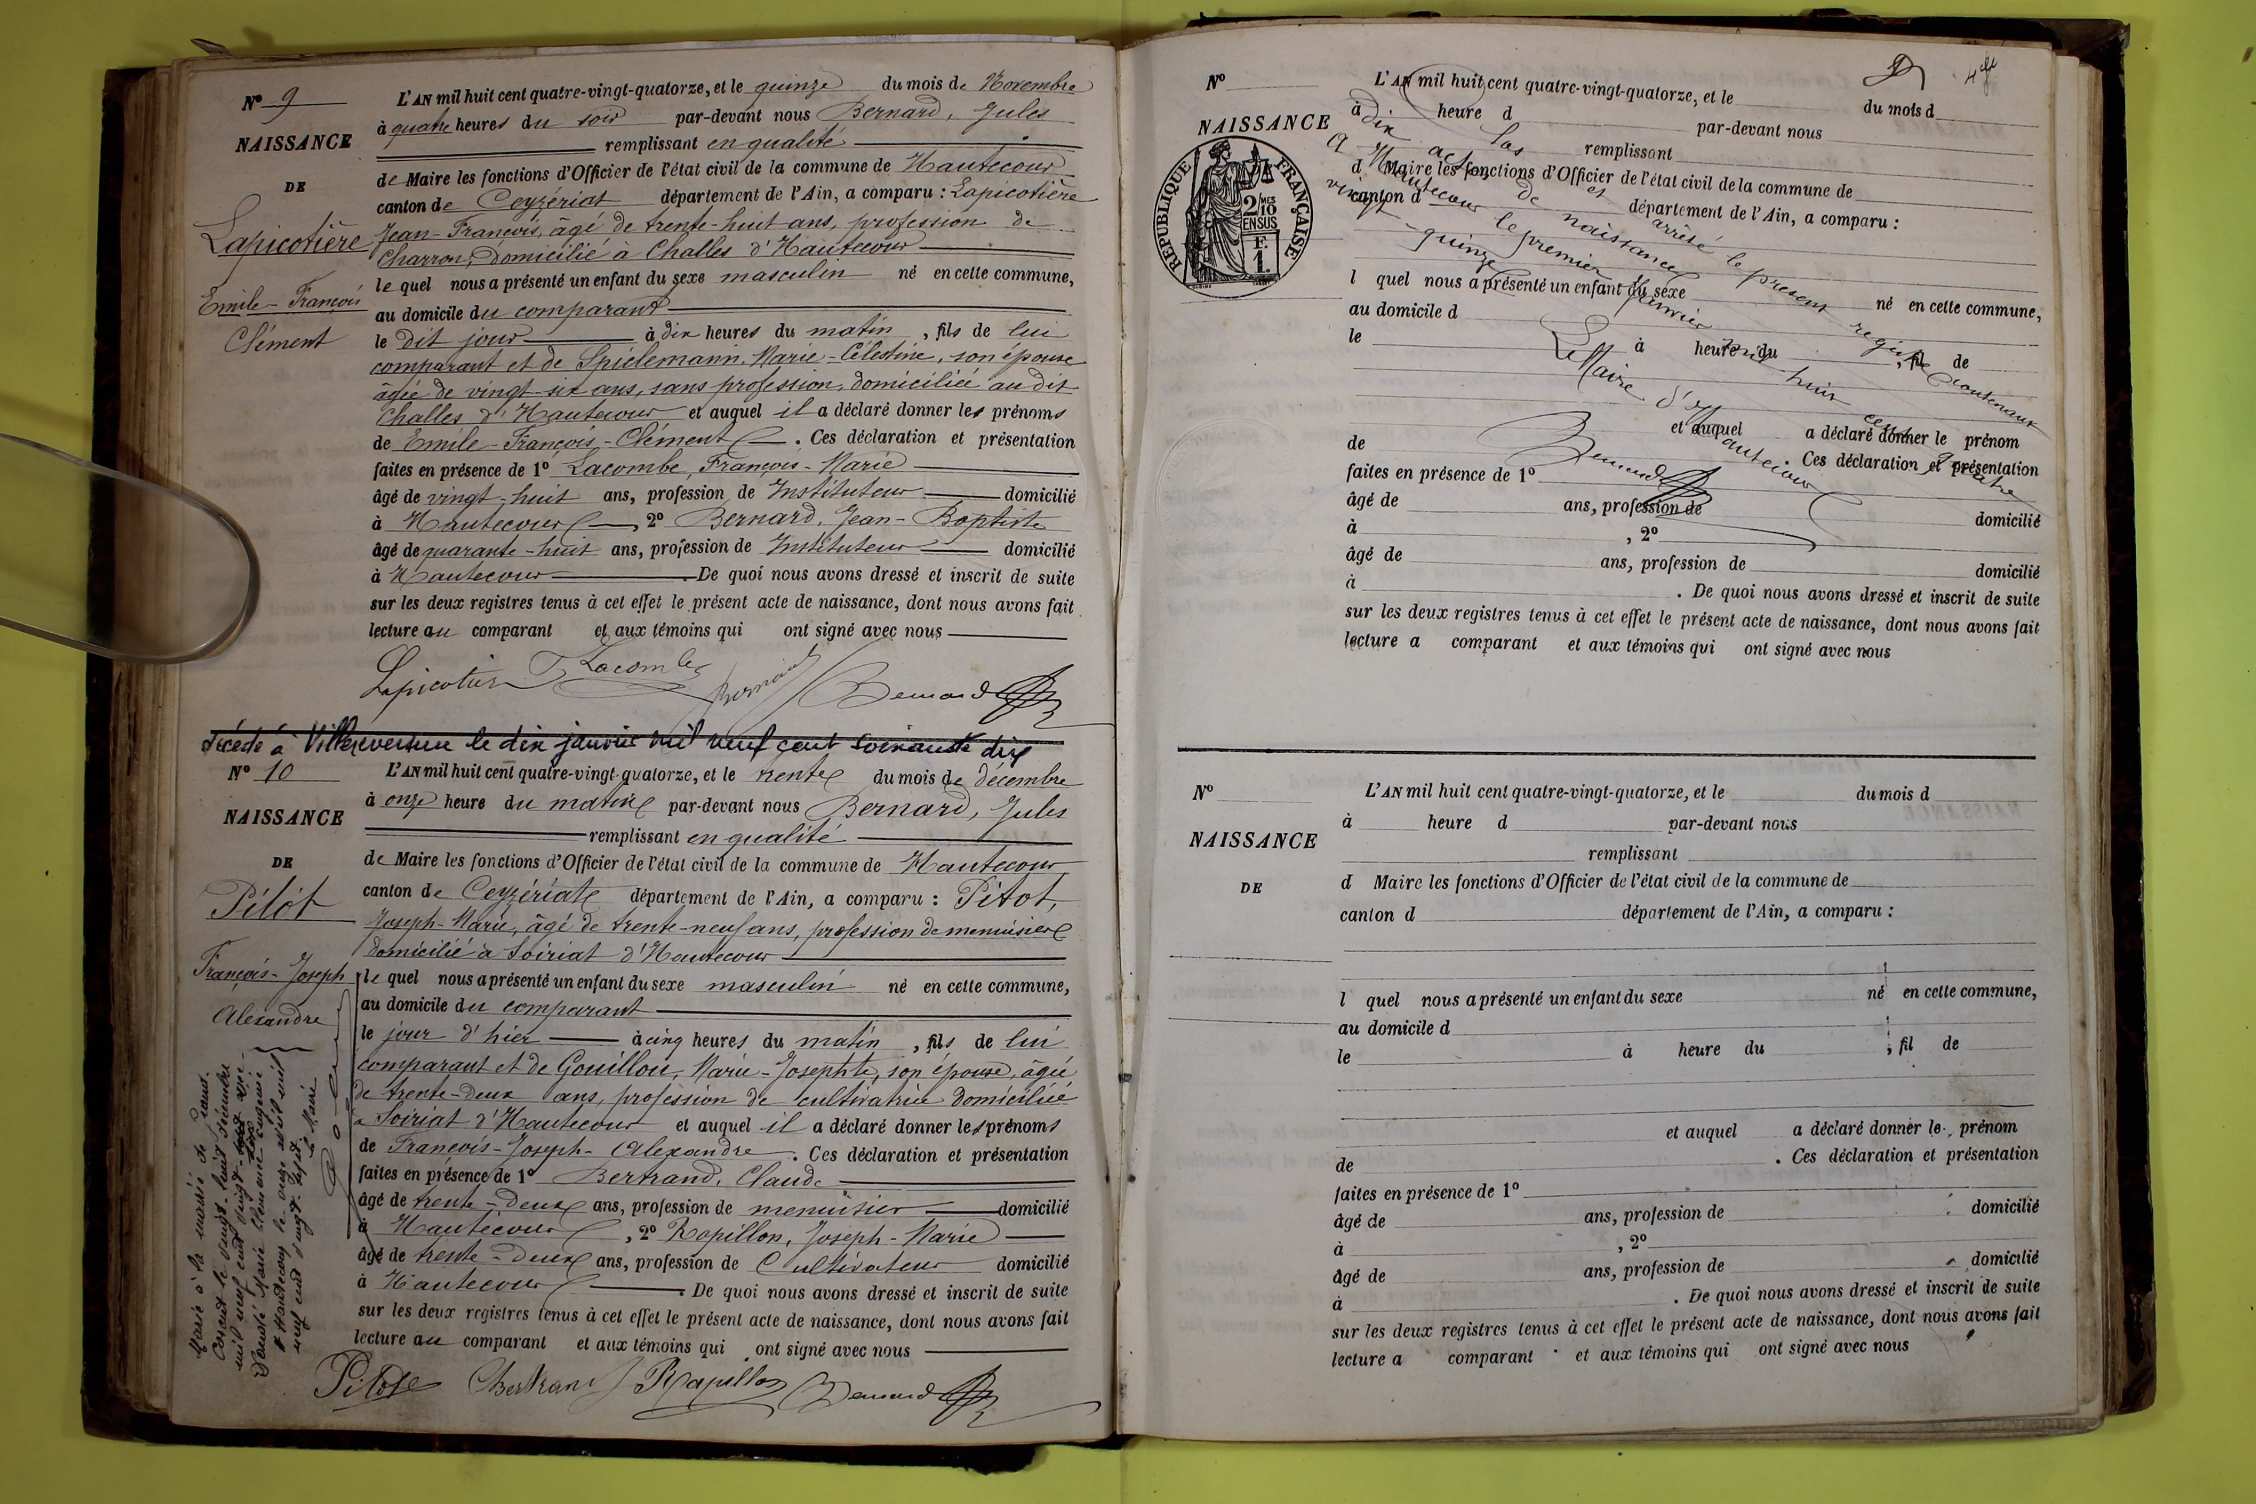 Nº 9
NAISSANCE
DE
Lapicotière
Emile-François
Clément
L'AN mil huit cent quatre-vingt-quatorze, et le quinze du mois de Novembre
à quatre heures du soir par-devant nous Bernard, Jules
remplissant en qualité
de Maire les fonctions d'Officier de l'état civil de la commune de Hautecour
canton de Ceyzériat département de l'Ain, a comparu : Lapicotière
Jean-François, âgé de trente-huit ans, profession de
Charron, domicilié à Challes d'Hautecour
le quel nous a présenté un enfant du sexe masculin né en cette commune,
au domicile du comparant
le dit jour à dix heures du matin, fils de lui
comparant et de Spielemann, Marie-Célestine, son épouse
âgée de vingt-six ans, sans profession, domiciliée au dit
Challes d'Hautecour et auquel il a déclaré donner les prénoms
de Emile-François-Clément. Ces déclaration et présentation
faites en présence de 1º Lacombe, François-Marie
âgé de vingt-huit ans, profession de Instituteur domicilié
à Hautecour, 2º Bernard, Jean-Baptiste
âgé de quarante-huit ans, profession de Instituteur domicilié
à Hautecour. De quoi nous avons dressé et inscrit de suite
sur les deux registres tenus à cet effet le présent acte de naissance, dont nous avons fait
lecture au comparant et aux témoins qui ont signé avec nous
Lapicotière Lacombe Bernard Bernard
décédé à Villereversure le dix janvier mil neuf cent soixante dix
Nº 10
NAISSANCE
DE
Pitot
François-Joseph
Alexandre
L'AN mil huit cent quatre-vingt-quatorze, et le trente du mois de décembre
à onze heure du matin par-devant nous Bernard, Jules
remplissant en qualité
de Maire les fonctions d'Officier de l'état civil de la commune de Hautecour
canton de Ceyzériat département de l'Ain, a comparu : Pitot,
Joseph-Marie, âgé de trente-neuf ans, profession de menuisier
domicilié à Soiriat d'Hautecour
le quel nous a présenté un enfant du sexe masculin né en cette commune,
au domicile du comparant
le jour d'hier à cinq heures du matin, fils de lui
comparant et de Gouillou, Marie-Josephte, son épouse, âgée
de trente-deux ans, profession de cultivatrice domiciliée
à Soiriat d'Hautecour et auquel il a déclaré donner les prénoms
de François-Joseph-Alexandre. Ces déclaration et présentation
faites en présence de 1º Bertrand, Claude
âgé de trente-deux ans, profession de menuisier domicilié
à Hautecour, 2º Rapillon, Joseph-Marie
âgé de trente-deux ans, profession de Cultivateur domicilié
à Hautecour. De quoi nous avons dressé et inscrit de suite
sur les deux registres tenus à cet effet le présent acte de naissance, dont nous avons fait
lecture au comparant et aux témoins qui ont signé avec nous
Pitot Bertrand Rapillon Bernard
Marié à la mairie de
le vingt-huit décembre
mil neuf cent vingt
Marie Clémence Eugénie
Hautecour le onze avril mil
neuf cent vingt sept
Le Maire
Nº
NAISSANCE
RÉPUBLIQUE FRANÇAISE
2/10 MES
EN SUS
F.
1.
L'AN mil huit cent quatre-vingt-quatorze, et le du mois d
à heure d par-devant nous
remplissant
d Maire les fonctions d'Officier de l'état civil de la commune de
canton d département de l'Ain, a comparu :
l quel nous a présenté un enfant du sexe né en cette commune,
au domicile d
le à heure du , fil de
et auquel a déclaré donner le prénom
de . Ces déclaration et présentation
faites en présence de 1º
âgé de ans, profession de domicilié
à , 2º
âgé de ans, profession de domicilié
à . De quoi nous avons dressé et inscrit de suite
sur les deux registres tenus à cet effet le présent acte de naissance, dont nous avons fait
lecture a comparant et aux témoins qui ont signé avec nous
clos et arrêté le présent registre contenant
dix actes de naissance
A Hautecour le premier janvier mil huit cent quatre
vingt-quinze
Le Maire d'Hautecour
Bernard
Nº
NAISSANCE
DE
L'AN mil huit cent quatre-vingt-quatorze, et le du mois d
à heure d par-devant nous
remplissant
d Maire les fonctions d'Officier de l'état civil de la commune de
canton d département de l'Ain, a comparu :
l quel nous a présenté un enfant du sexe né en cette commune,
au domicile d
le à heure du , fil de
et auquel a déclaré donner le prénom
de . Ces déclaration et présentation
faites en présence de 1º
âgé de ans, profession de domicilié
à , 2º
âgé de ans, profession de domicilié
à . De quoi nous avons dressé et inscrit de suite
sur les deux registres tenus à cet effet le présent acte de naissance, dont nous avons fait
lecture a comparant et aux témoins qui ont signé avec nous